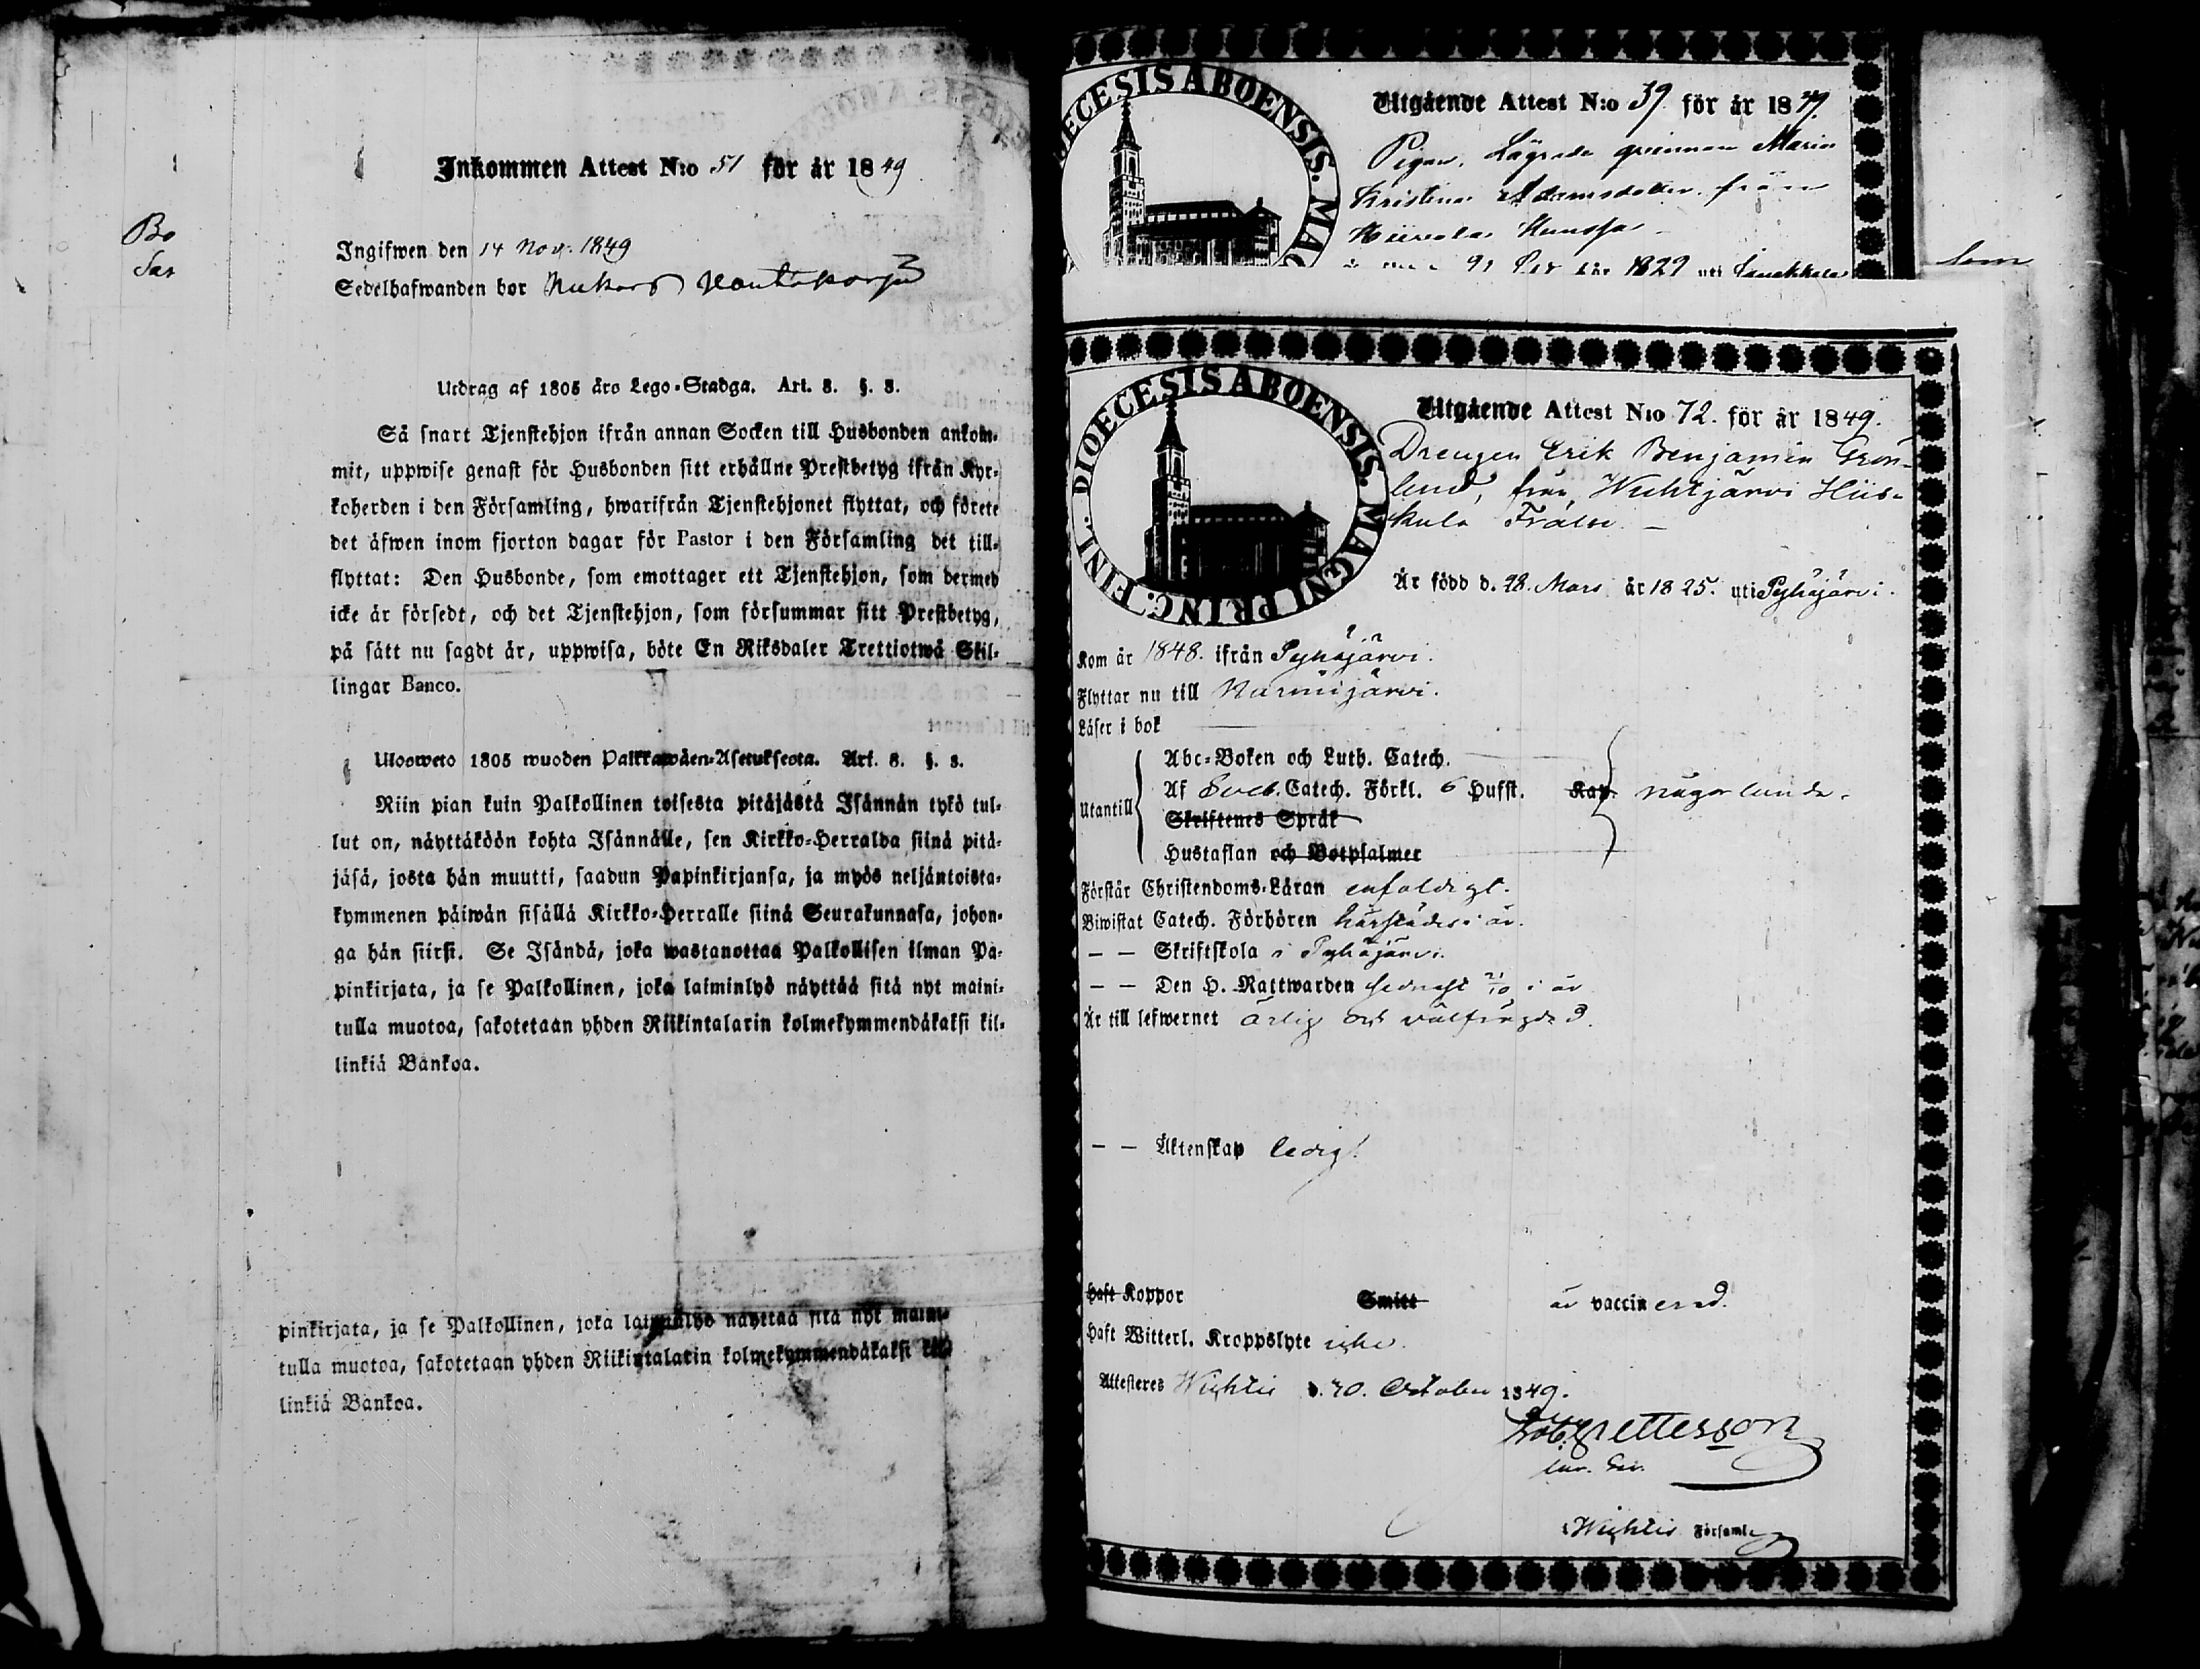 Bo
Sar
Inkommen Attest N:o 51 för år 1849
Ingifwen den 14 Nov. 1849
Sedelhafwanden bor
Utdrag af 1805 års Lego-Stadga. Art. 8. §. 8.
Så snart Tjenstehjon ifrån annan Socken till Husbonden ankom-
mit, uppwise genast för Husbonden sitt erhållne Prestbetyg ifrån Kyr-
koherden i den Församling, hwarifrån Tjenstehjonet flyttat, och förete
det äfwen inom fjorton dagar för Pastor i den Församling det till-
flyttat: Den Husbonde, som emottager ett Tjenstehjon, som dermed
icke är försedt, och det Tjenstehjon, som försummar sitt Prestbetyg,
på sätt nu sagdt är, uppwisa, böte En Riksdaler Trettiotwå Skil-
lingar Banco.
Ulosweto 1805 wuoden Palkkawäen-Asetuksesta. Art. 8. §. 8.
Niin pian kuin Palkollinen toisesta pitäjästä Isännän tykö tul-
lut on, näyttäköön kohta Isännälle, sen Kirkko-Herralda siinä pitä-
jäsä, josta hän muutti, saadun Papinkirjansa, ja myös neljäntoista-
kymmenen päiwän sisällä Kirkko-Herralle siinä Seurakunnasa, johon-
ga hän siirsi. Se Isändä, joka wastanottaa Palkollisen ilman Pa-
pinkirjata, ja se Palkollinen, joka laiminlyö näyttää sitä nyt maini-
tulla muotoa, sakotetaan yhden Riikintalarin kolmekymmendäkaksi kil-
linkiä Bankoa.
pinkirjata, ja se Palkollinen, joka laiminlyö näyttää sitä nyt maini-
tulla muotoa, sakotetaan yhden Riikintalarin kolmekymmendäkaksi kil-
linkiä Bankoa.
DIOECESIS ABOENSIS. MAG
Utgående Attest N:o 39 för år 1849.
Pigan, Lägrade qvinnan Maria
Kristina Adamsdotter från
Hiiviola
1829 uti
som
DIOECESIS ABOENSIS. MAGNI PRINC. FINL.
Utgående Attest N:o 72. för år 1849.
Drengen Erik Benjamin Grön-
lund, från Wuhtjärvi Hiis-
kula Frälse
Är född d. 28. Mars år 1825. uti Pyhäjärvi.
Kom år 1848. ifrån Pyhäjärvi.
Flyttar nu till Nurmijärvi.
Läser i bok
Utantill
Abc-Boken och Luth. Catech.
Af Sveb. Catech. Förkl. 6 Hufst. Kap. någorlunda.
Skriftenes Språk
Hustaflan och Botpsalmer
Förstår Christendoms-Läran enfaldigt.
Biwistat Catech. Förhören härstädes i år.
— — Skriftskola i Pyhäjärvi.
— — Den H. Nattwarden sednast 21/10 i år
Är till lefwernet ärlig och välfrägdad.
— — Äktenskap ledig
Haft Koppor Smitt är vaccinerad.
Haft Witterl. Kroppslyte icke.
Attesteras Wichtis d. 30. October 1849.
Rob. Pettersson
Wichtis Församl.